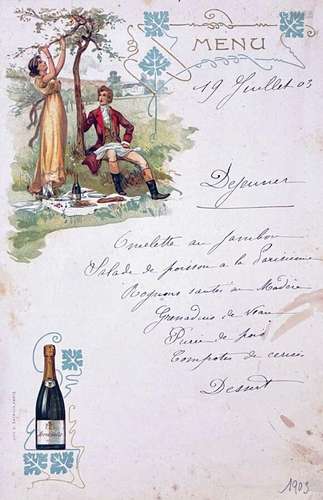 MENU
19 Juillet 03
Dejeuner
Omelette au Jambon
Salade de poisson a la Parisienne
Rognons sautés au Madère
Grenadins de Veau
Purée de pois
Compotes de cerises
Dessert
1903